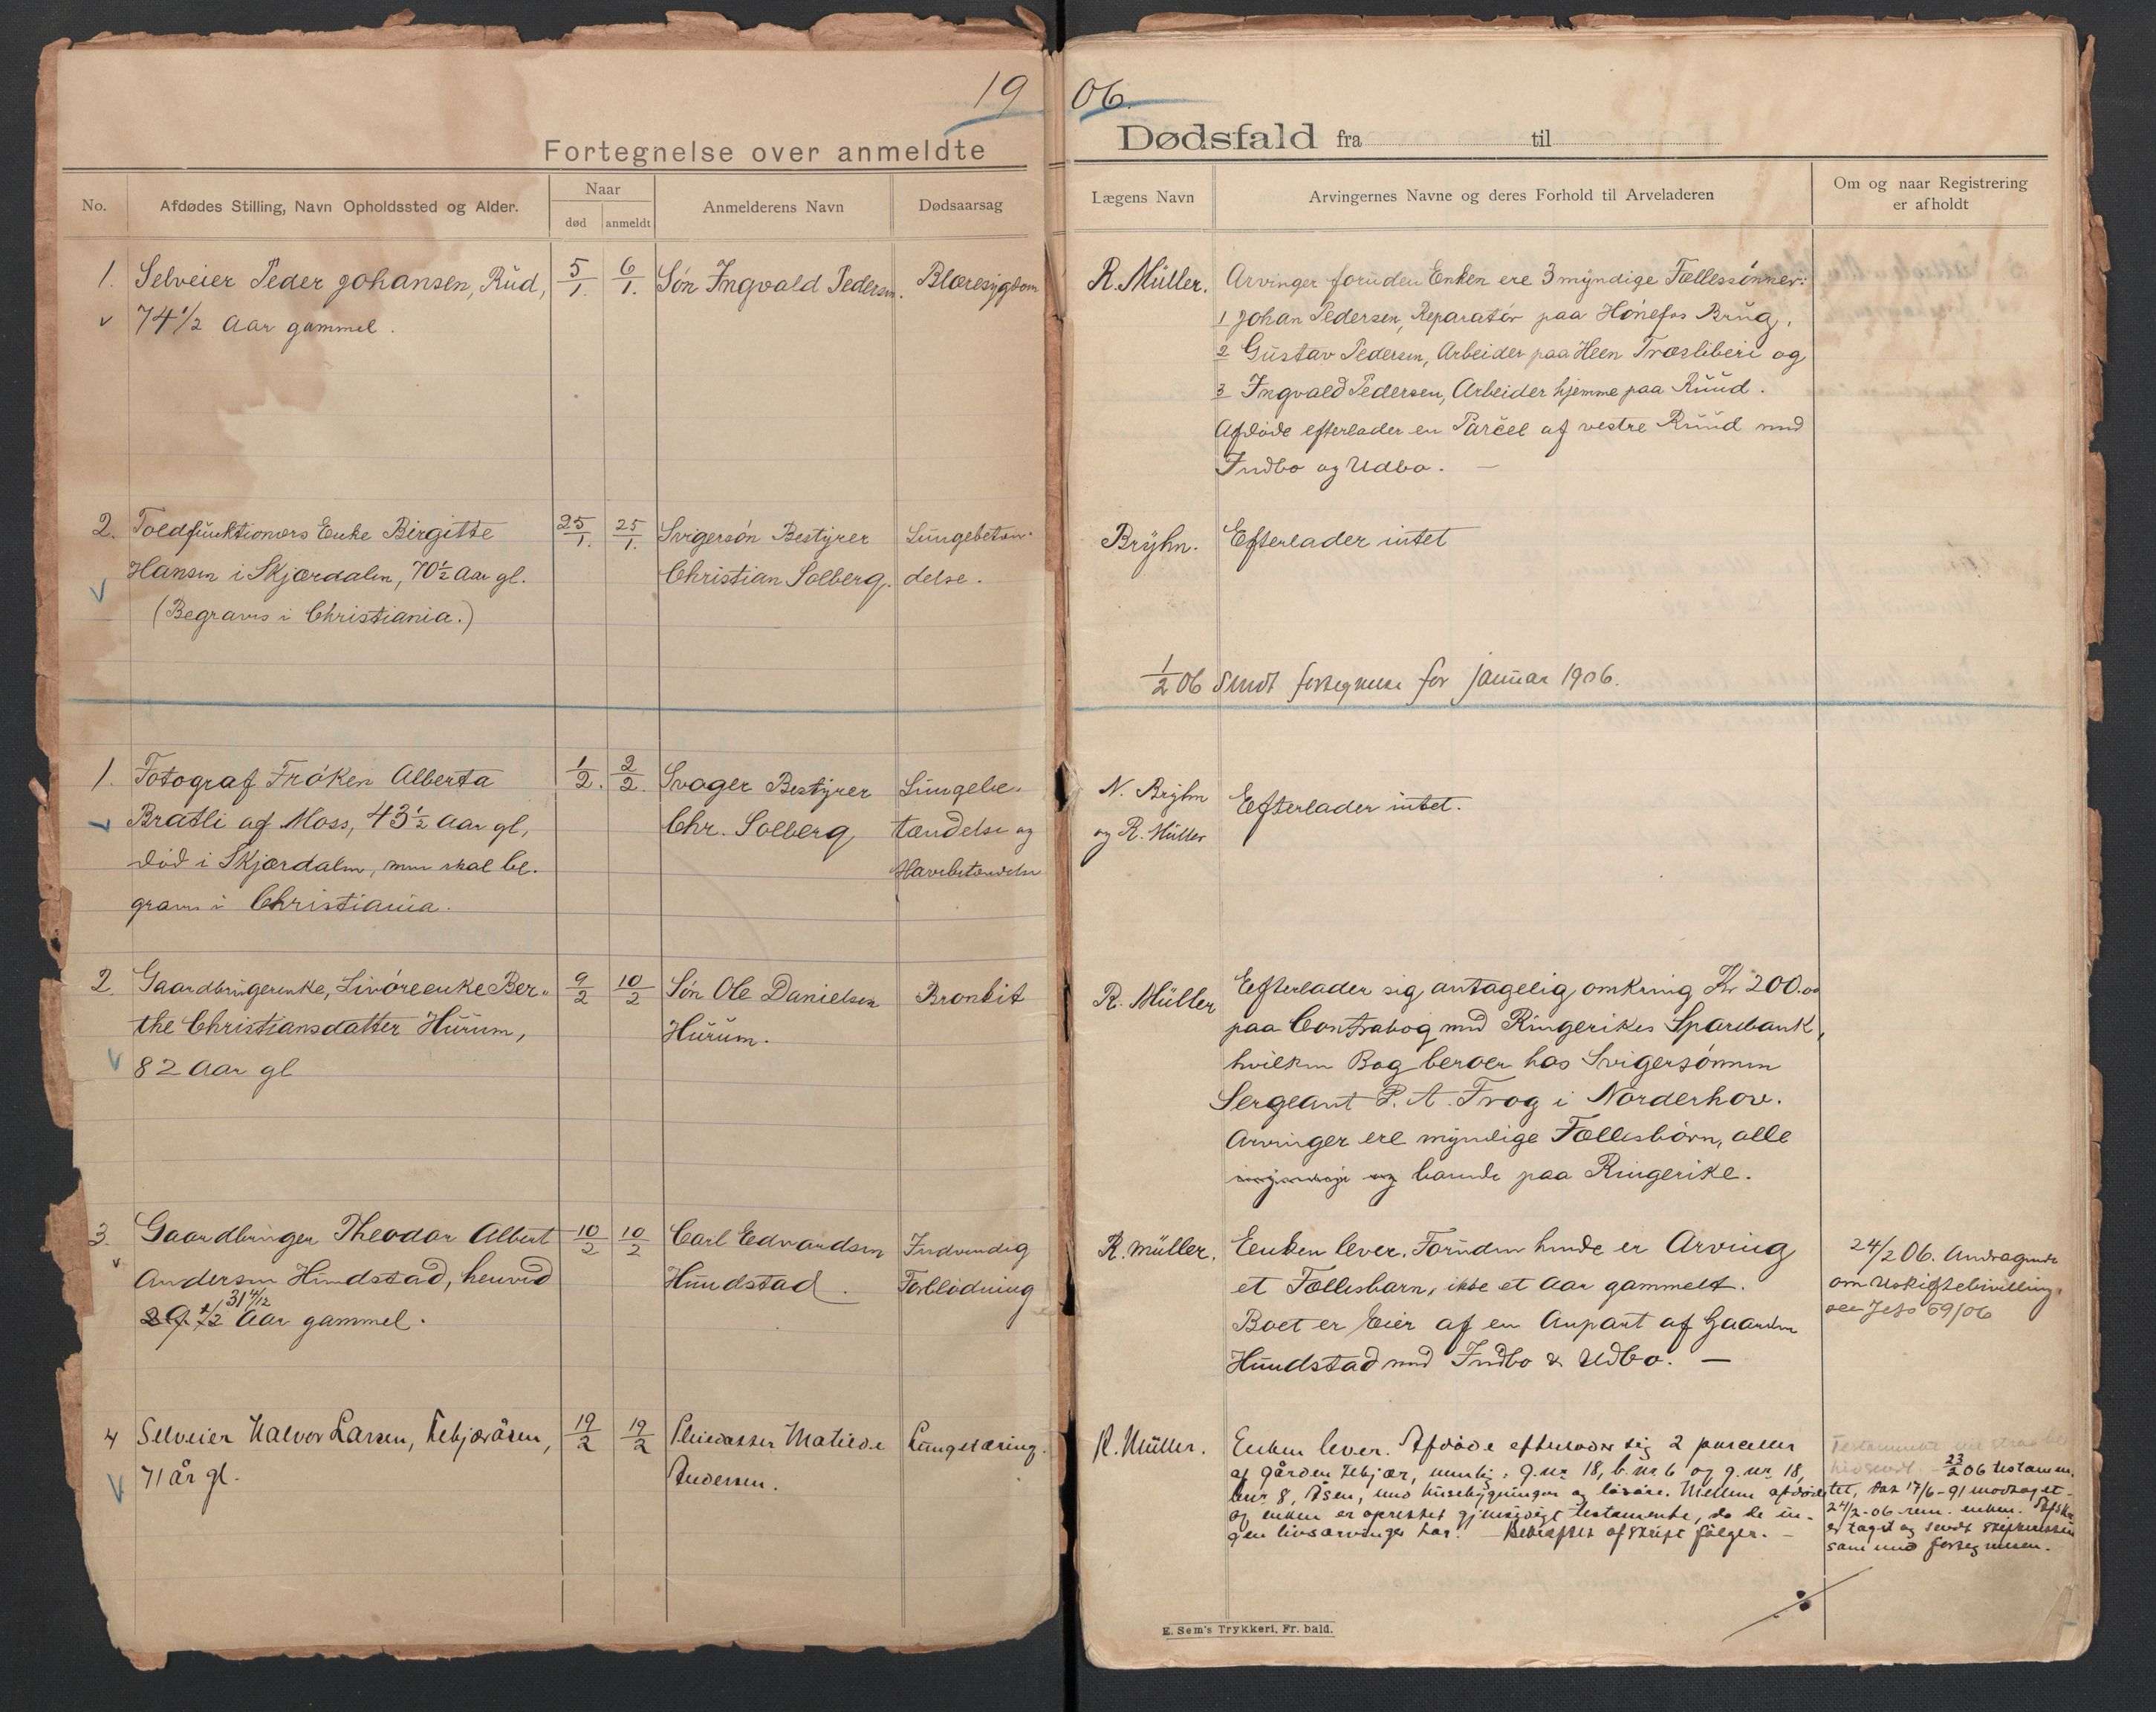 19
06.
Fortegnelse over anmeldte
Dødsfald fra til
No.
Afdødes Stilling, Navn Opholdssted og Alder.
Naar
død
anmeldt
Anmelderens Navn
Dødsaarsag
Lægens Navn
Arvingernes Navne og deres Forhold til Arveladeren
Om og naar Registrering
er afholdt
1. Selveier Peder Johansen, Rud,
74 1/2 Aar gammel.
5/1. 6/1.
Søn Ingvald Pedersen.
Blæresygdom
R. Müller.
Arvinger foruden Enken ere 3 myndige Fællessønner:
1 Johan Pedersen, Reparatør paa Hønefos Brug,
2 Gustav Pedersen, Arbeider paa Heen Træsliberi og
3 Ingvald Pedersen, Arbeider hjemme paa Ruud.
Afdøde efterlader en Parcel af vestre Ruud med
Indbo og Udbo. —
2. Toldfunktionærs Enke Birgitte
Hansen i Skjærdalen, 70 1/2 Aar gl.
(Begraves i Christiania.)
25/1. 25/1.
Svigersøn Bestyrer
Christian Solberg.
Lungebetæn-
delse.
Bryhn.
Efterlader intet
1/2 06 Sendt fortegnelse for januar 1906.
1. Fotograf Frøken Alberta
Bratli af Moss, 43 1/2 Aar gl,
død i Skjærdalen, men skal be-
graves i Christiania.
1/2. 2/2.
Svoger Bestyrer
Chr. Solberg
Lungebe-
tændelse og
N. Bryhn
og R. Müller
Efterlader intet.
2. Gaardbrugerenke, Livøreenke Ber-
the Christiansdatter Hurum,
82 Aar gl
9/2 10/2
Søn Ole Danielsen
Hurum.
Bronkit
R. Müller
Efterlader sig antagelig omkring Kr 200.00
paa Contrabog med Ringerikes Sparebank,
hvilken Bog beroer hos Svigersønnen
Sergeant P. A. Frog i Norderhov.
Arvinger ere myndige Fællesbørn, alle
myndige og boende paa Ringerike.
3. Gaardbruger Theodor Albert
Andersen Hundstad, henved
31 4/12
29 1/2 Aar gammel.
10/2 10/2
Carl Edvardsen
Hundstad.
Indvendig
Forblødning
R. Müller.
Enken lever. Foruden hende er Arving
et Fællesbarn, ikke et Aar gammelt.
Boet er Eier af en Anpart af Gaarden
Hundstad med Indbo & Udbo. —
24/2 06. Andragende
om Uskiftebevilling,
69/06
4 Selveier Halvor Larsen, Hebjøråsen,
71 år gl.
19/2 19/2
Pleiedatter Matilde
Andersen.
Lungetæring.
R. Müller.
Enken lever. Afdøde efterlader sig 2 parceller
af gården Hebjør, nemlig: g.nr. 18, b.nr. 6 og g.nr. 18,
bnr. 8, Åsen, med husebygninger og løsøre. Mellem afdøde
og enken er oprettet gjensidigt testamente, da de in-
gen livsarvinger har. — Bekræftet afskrift følger. —
23/2 06 testamen-
tet, dat 17/6-91 modtaget.
24/2-06 rem. enken. Afskr.
er taget og sendt
sammen med fortegnelsen.
E. Sem's Trykkeri, Fr. hald.